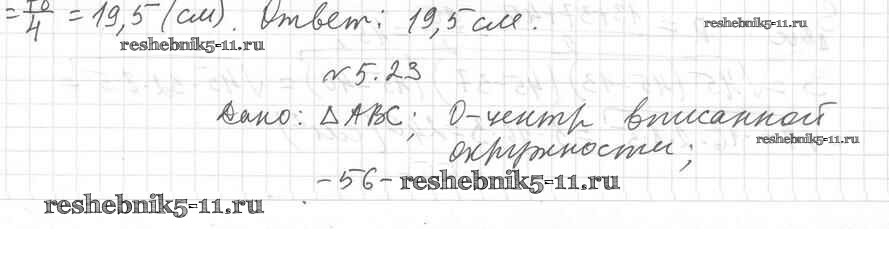 = 78/4 = 19,5 (см). Ответ: 19,5 см.
reshebnik5-11.ru
reshebnik5-11.ru
№ 5.23
Дано: △ABC; O-центр вписанной
reshebnik5-11.ru
окружности;
-56- reshebnik5-11.ru
reshebnik5-11.ru